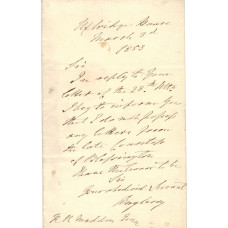 Uxbridge House
March 2d
1853
Sir
In reply to your
letter of the 28th Ult?
I beg to inform you
that I do not possess
any letters from
the late Countess
of Blessington
I have the honor to be
Sir
your obedient Servant
Anglesey
R. R. Madden Esqr